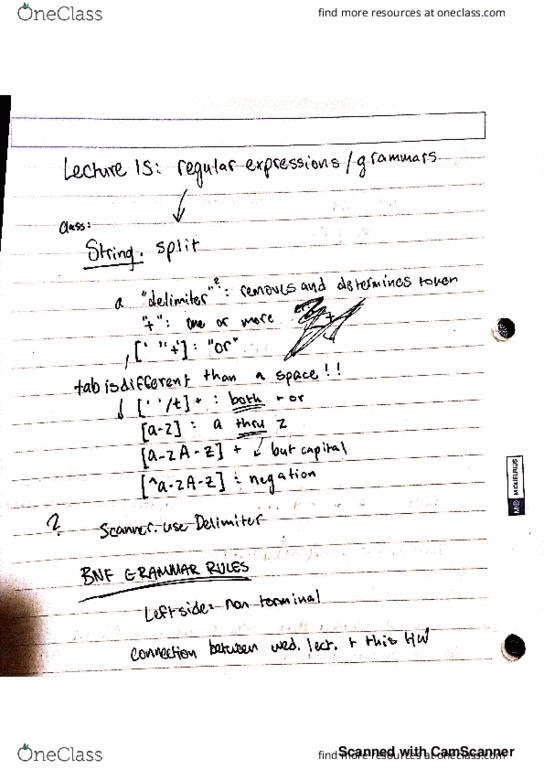 OneClass
find more resources at oneclass.com
Lecture 15: regular expressions/grammars
class:
String. split
a "delimiter": removes and determines token
"+": one or more
[' ' '+']: "or"
tab is different than a space!!
[' '/t]+ : both + or
[a-z] : a thru z
[a-zA-z] + but capital
[^a-zA-z] : negation
?
Scanner. use Delimiter
BNF GRAMMAR RULES
Left side: non terminal
connection between wed. lect. + this HW
MIQUELRIUS
OneClass
find more resources at oneclass.com
Scanned with CamScanner